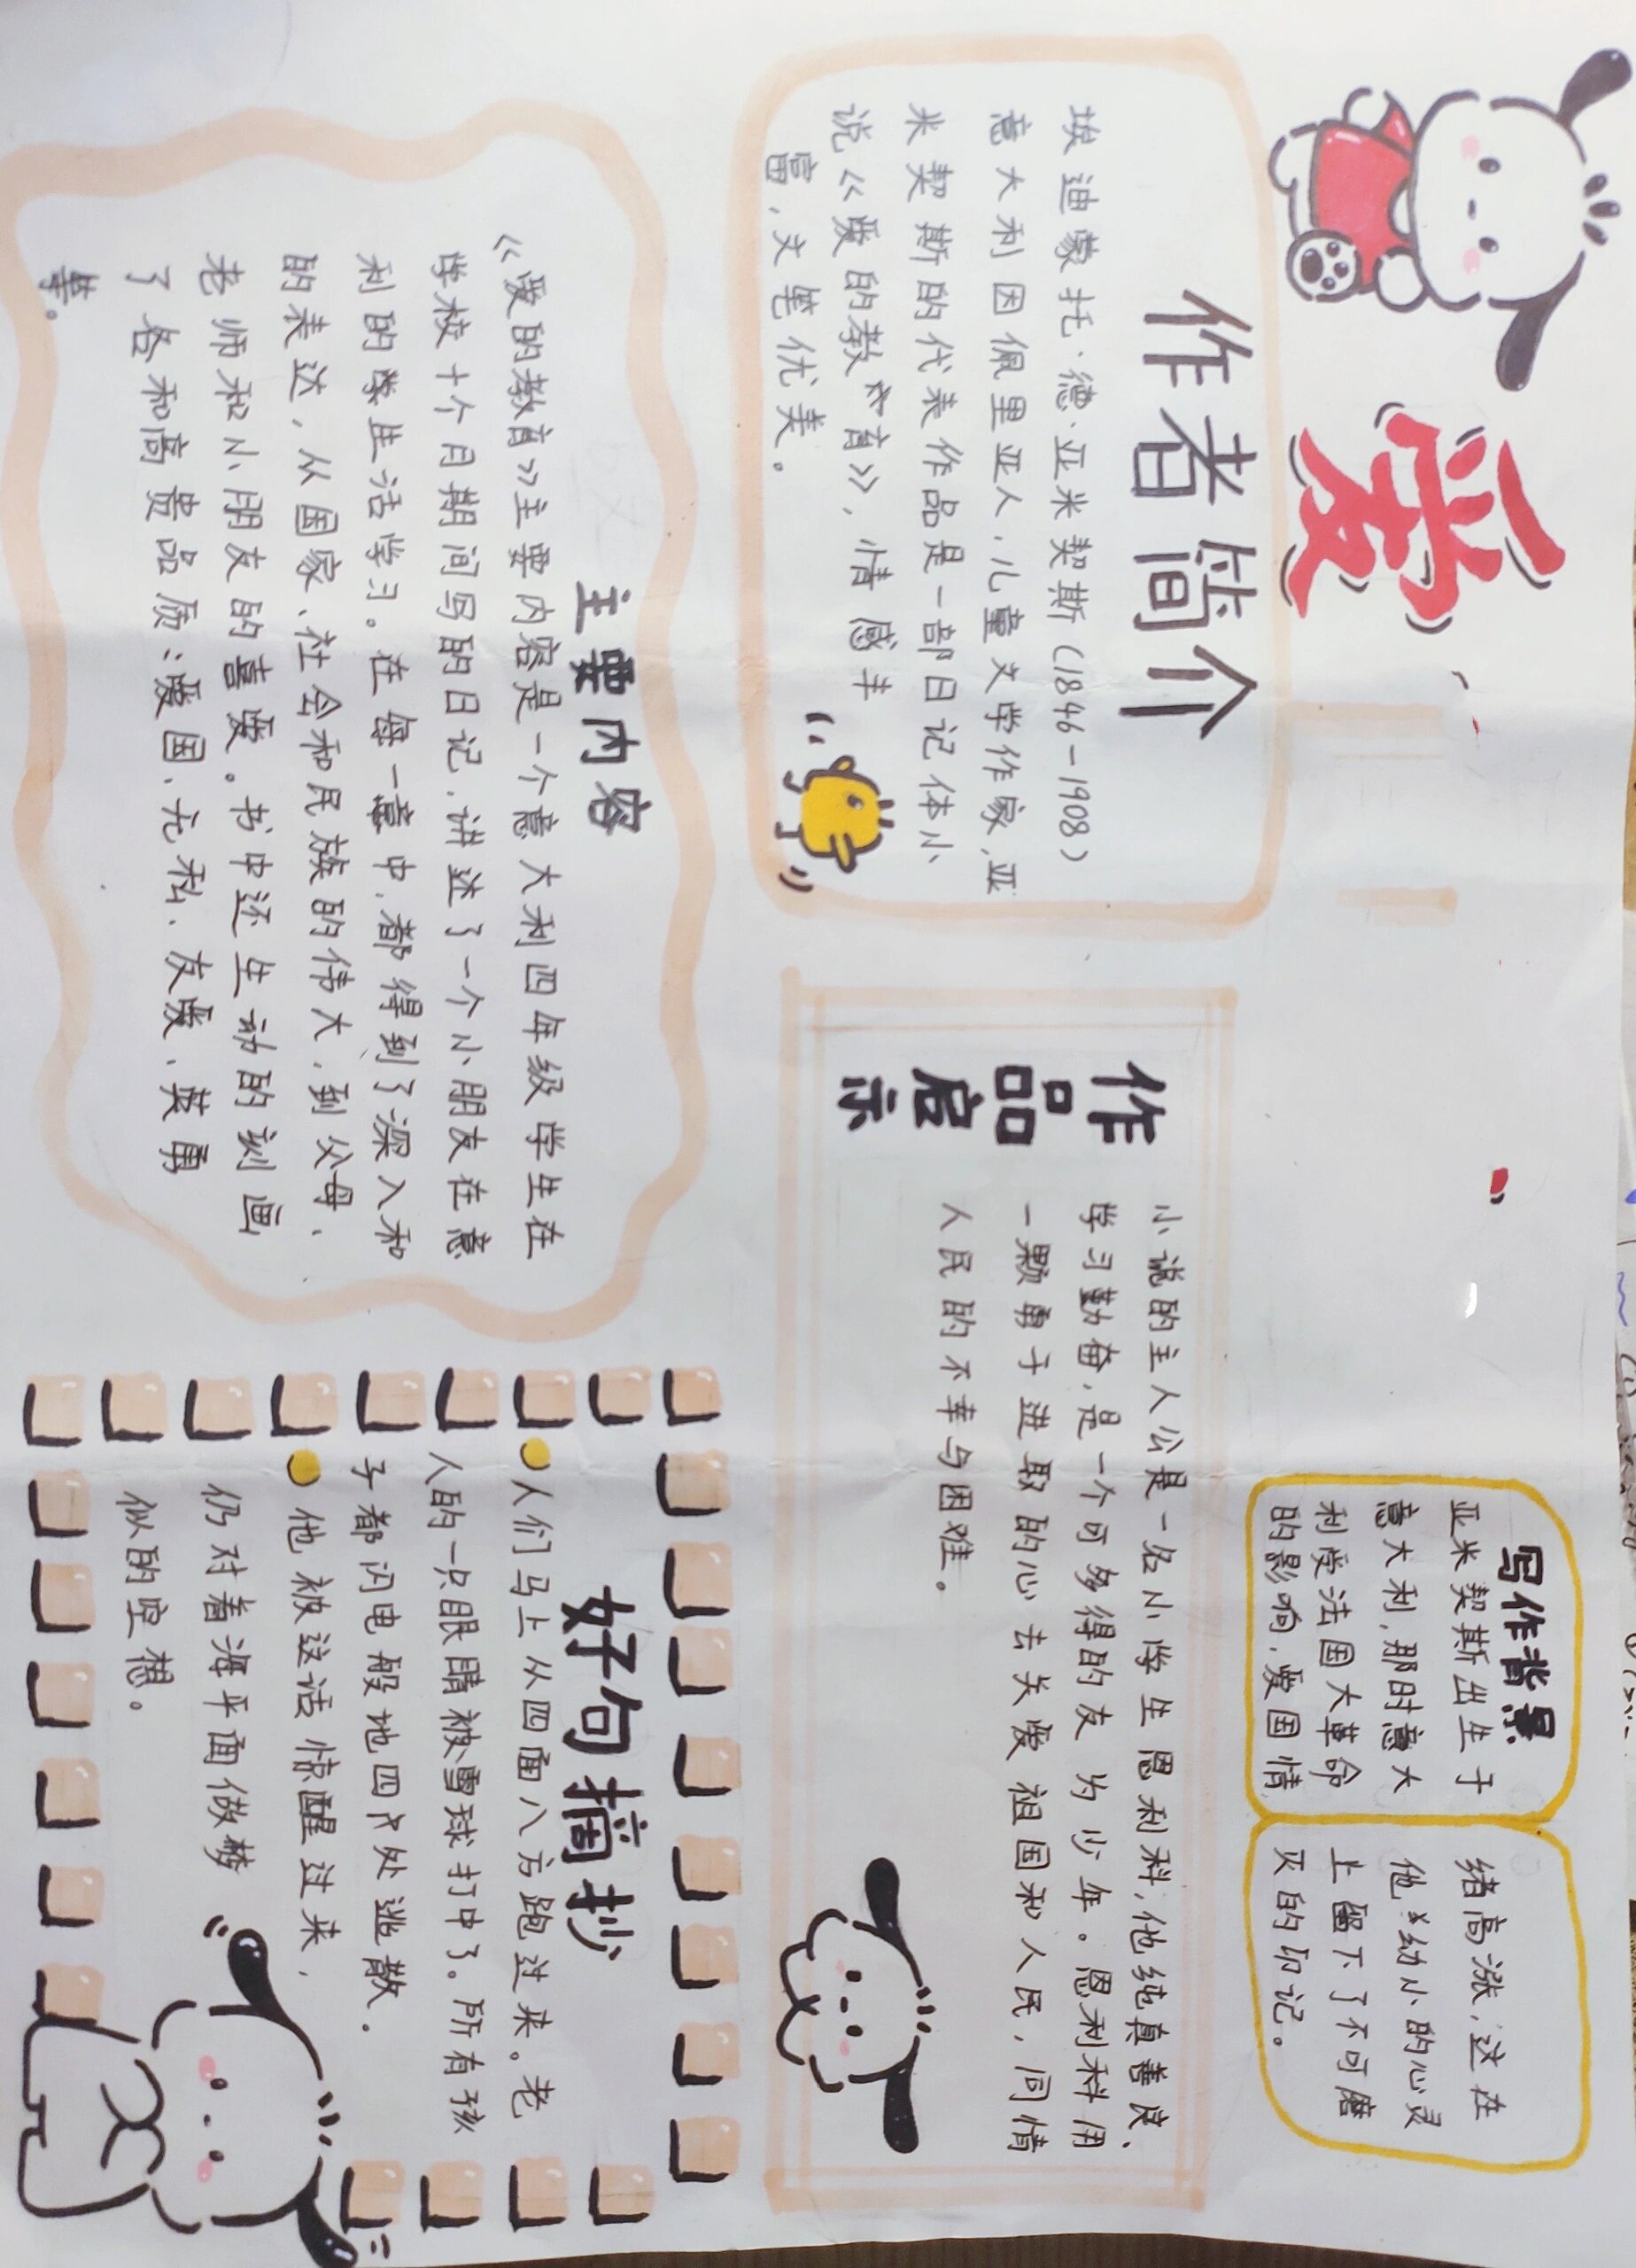 爱
作者简介
埃迪蒙托·德·亚米契斯(1846-1908)
意大利因佩里亚人,儿童文学作家,亚
米契斯的代表作品是一部日记体小
说《爱的教育》,情感丰
富,文笔优美。
写作背景
亚米契斯出生于
意大利,那时意大
利受法国大革命
的影响,爱国情
绪高涨,这在
他幼小的心灵
上留下了不可磨
灭的印记。
作品启示
小说的主人公是一名小学生恩利科,他纯真善良、
学习勤奋,是一个可多得的友为少年。恩利科用
一颗勇于进取的心去关爱祖国和人民,同情
人民的不幸与困难。
主要内容
《爱的教育》主要内容是一个意大利四年级学生在
学校十个月期间写的日记,讲述了一个小朋友在意
利的学生活学习。在每一章中,都得到了深入和
的表达,从国家、社会和民族的伟大,到父母、
老师和小朋友的喜爱。书中还生动的刻画
了各和高贵品质:爱国、无私、友爱、英勇
等。
好句摘抄
人们马上从四面八方跑过来。老
人的一只眼睛被雪球打中了。所有孩
子都闪电般地四处逃散.
他被这话惊醒过来,
仍对着海平面做梦
似的空想。